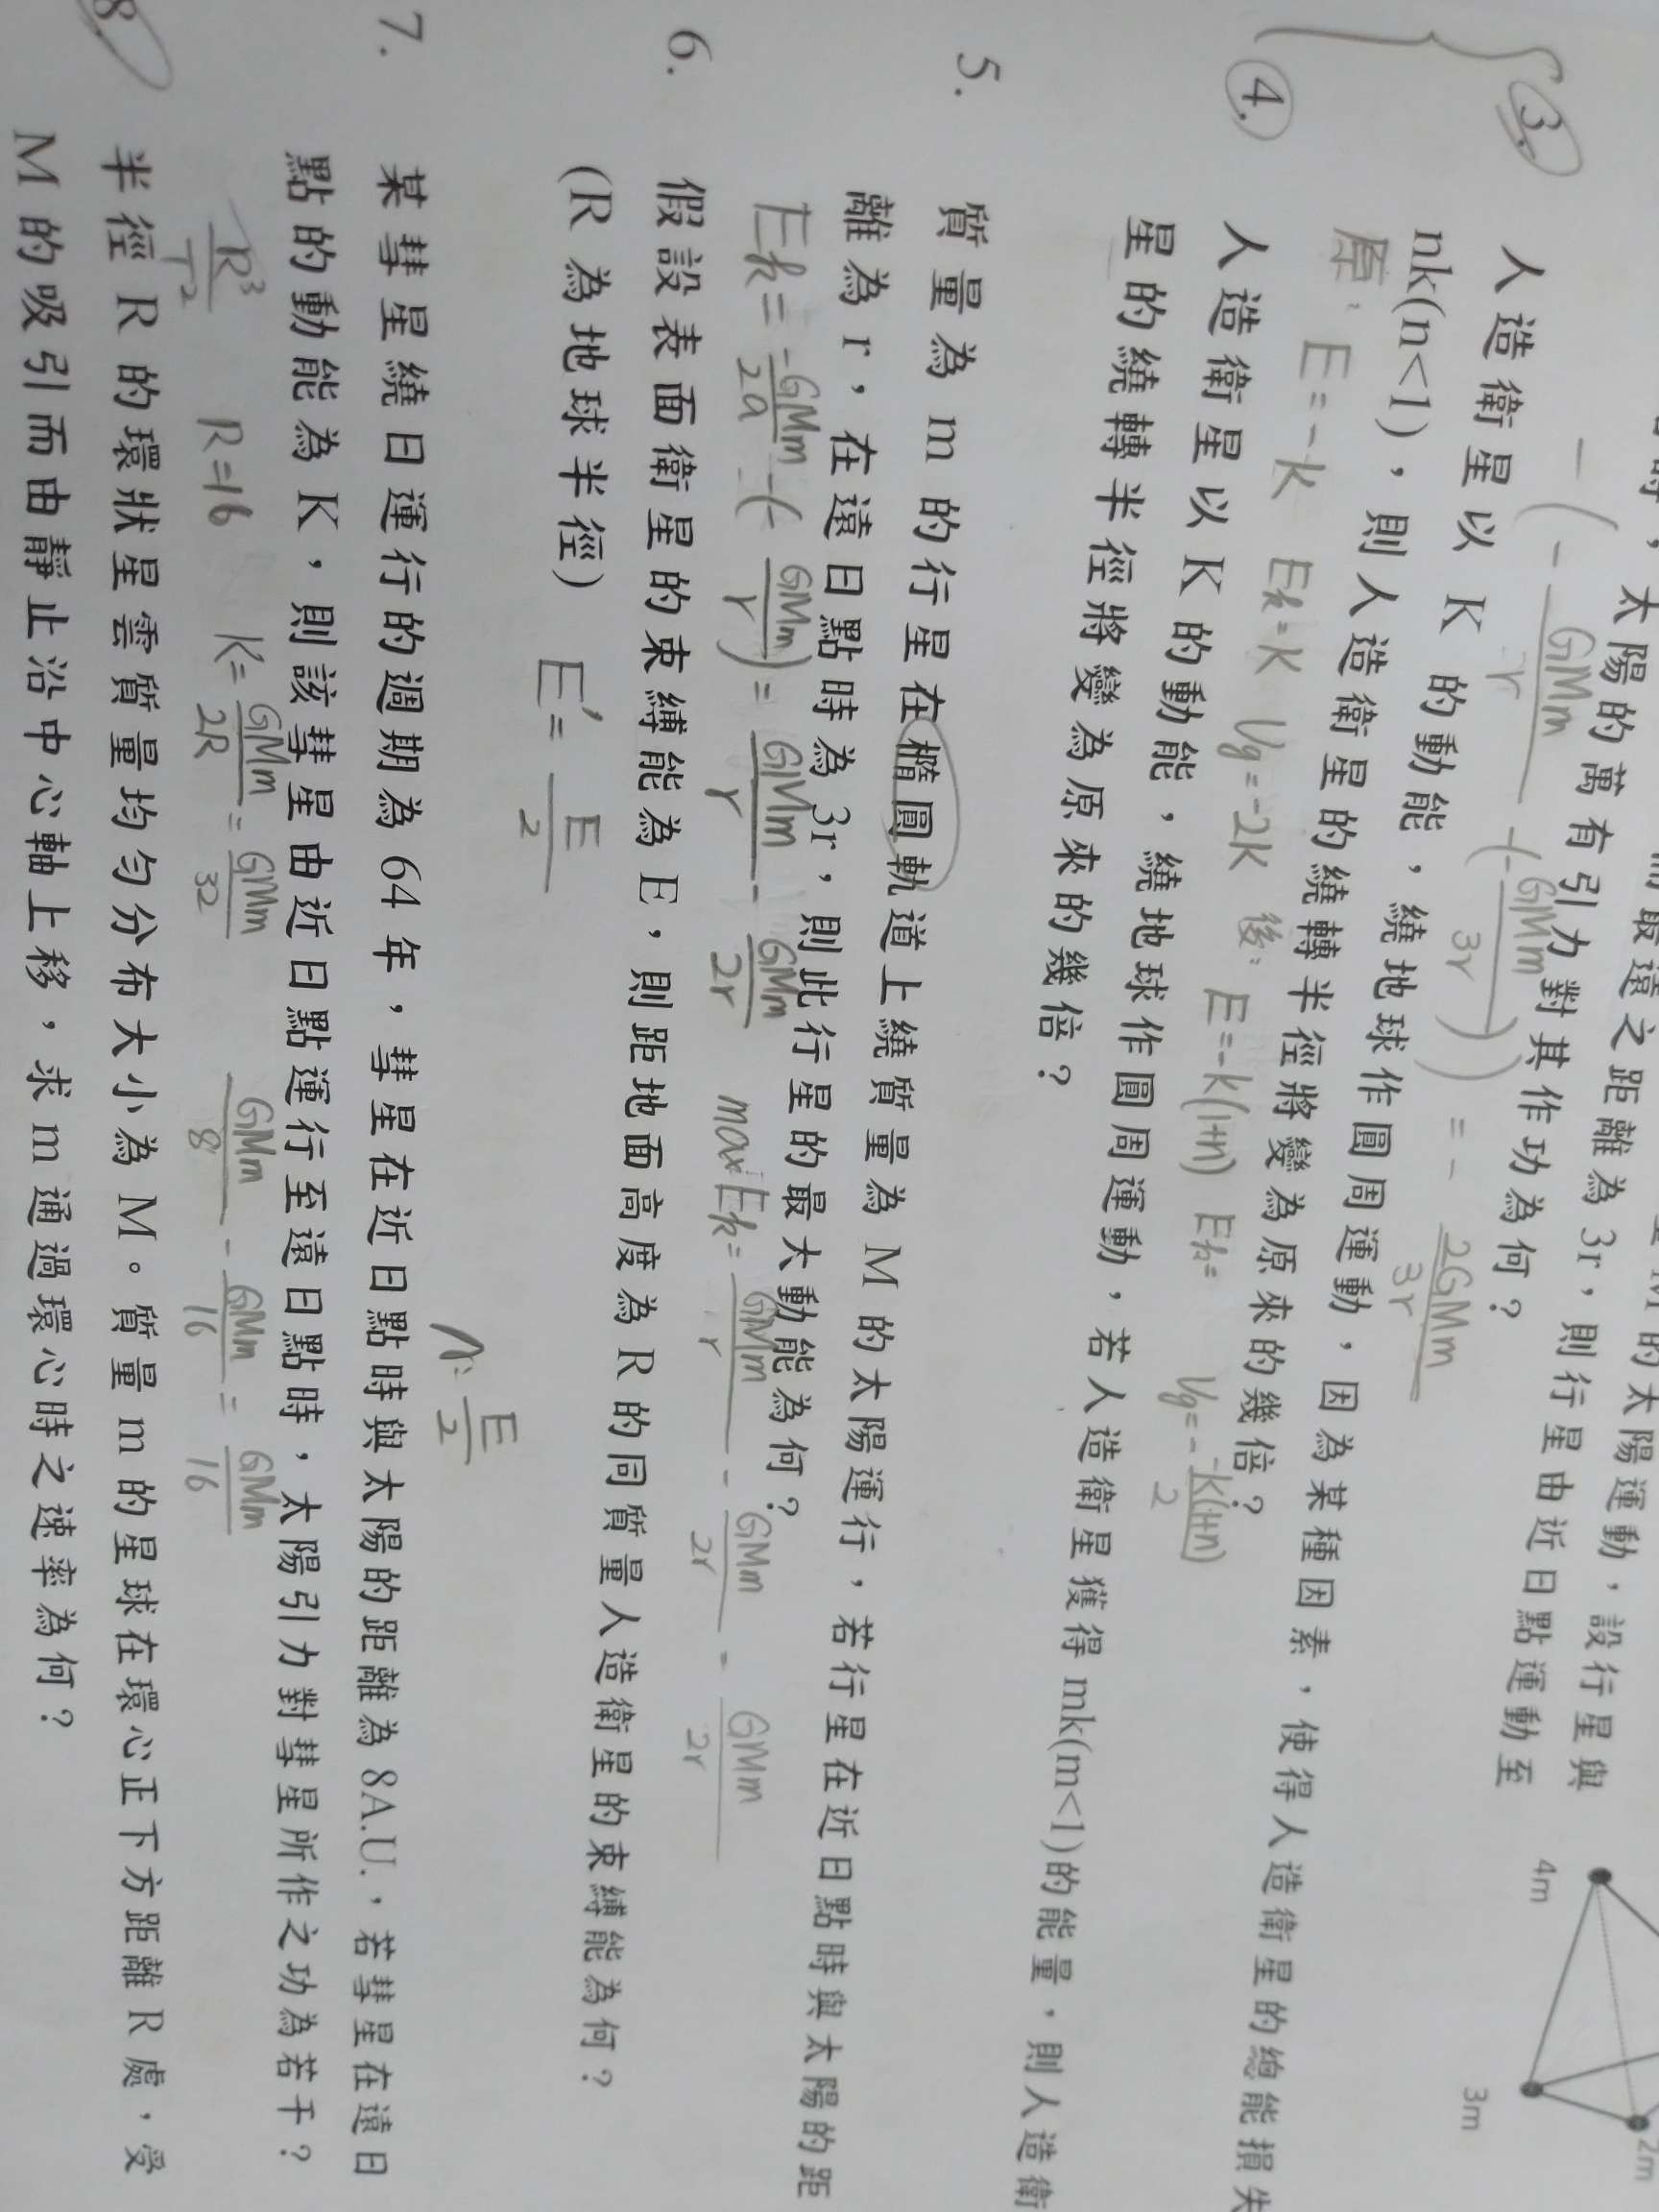 太陽的萬有引力對其作功為何？
而最遠之距離為 3r，則行星由近日點運動至
M 的太陽運動，設行星與
-(-GMm/r -(-GMm/3r)) = -2GMm/3r
4m
3m
2m
3. 人造衛星以 K 的動能，繞地球作圓周運動，因為某種因素，使得人造衛星的總能損失
nk(n<1)，則人造衛星的繞轉半徑將變為原來的幾倍？
原: E=-K Ek=K Ug=-2K 後: E=-k(1+n) Ek= Ug=--k(1+n)/2
4. 人造衛星以 K 的動能，繞地球作圓周運動，若人造衛星獲得 mk(m<1)的能量，則人造衛
星的繞轉半徑將變為原來的幾倍？
5. 質量為 m 的行星在橢圓軌道上繞質量為 M 的太陽運行，若行星在近日點時與太陽的距
離為 r，在遠日點時為 3r，則此行星的最大動能為何？
Ek=-GMm/2a -(-GMm/r)=GMm/r - GMm/2r max Ek=GMm/r - GMm/2r = GMm/2r
6. 假設表面衛星的束縛能為 E，則距地面高度為 R 的同質量人造衛星的束縛能為何？
(R 為地球半徑) E'=E/2
A: E/2
7. 某彗星繞日運行的週期為 64 年，彗星在近日點時與太陽的距離為 8A.U.，若彗星在遠日
點的動能為 K，則該彗星由近日點運行至遠日點時，太陽引力對彗星所作之功為若干？
R³/T² R=16 K=GMm/2R=GMm/32 GMm/8 - GMm/16 = GMm/16
8. 半徑 R 的環狀星雲質量均勻分布大小為 M。質量 m 的星球在環心正下方距離 R 處，受
M 的吸引而由靜止沿中心軸上移，求 m 通過環心時之速率為何？